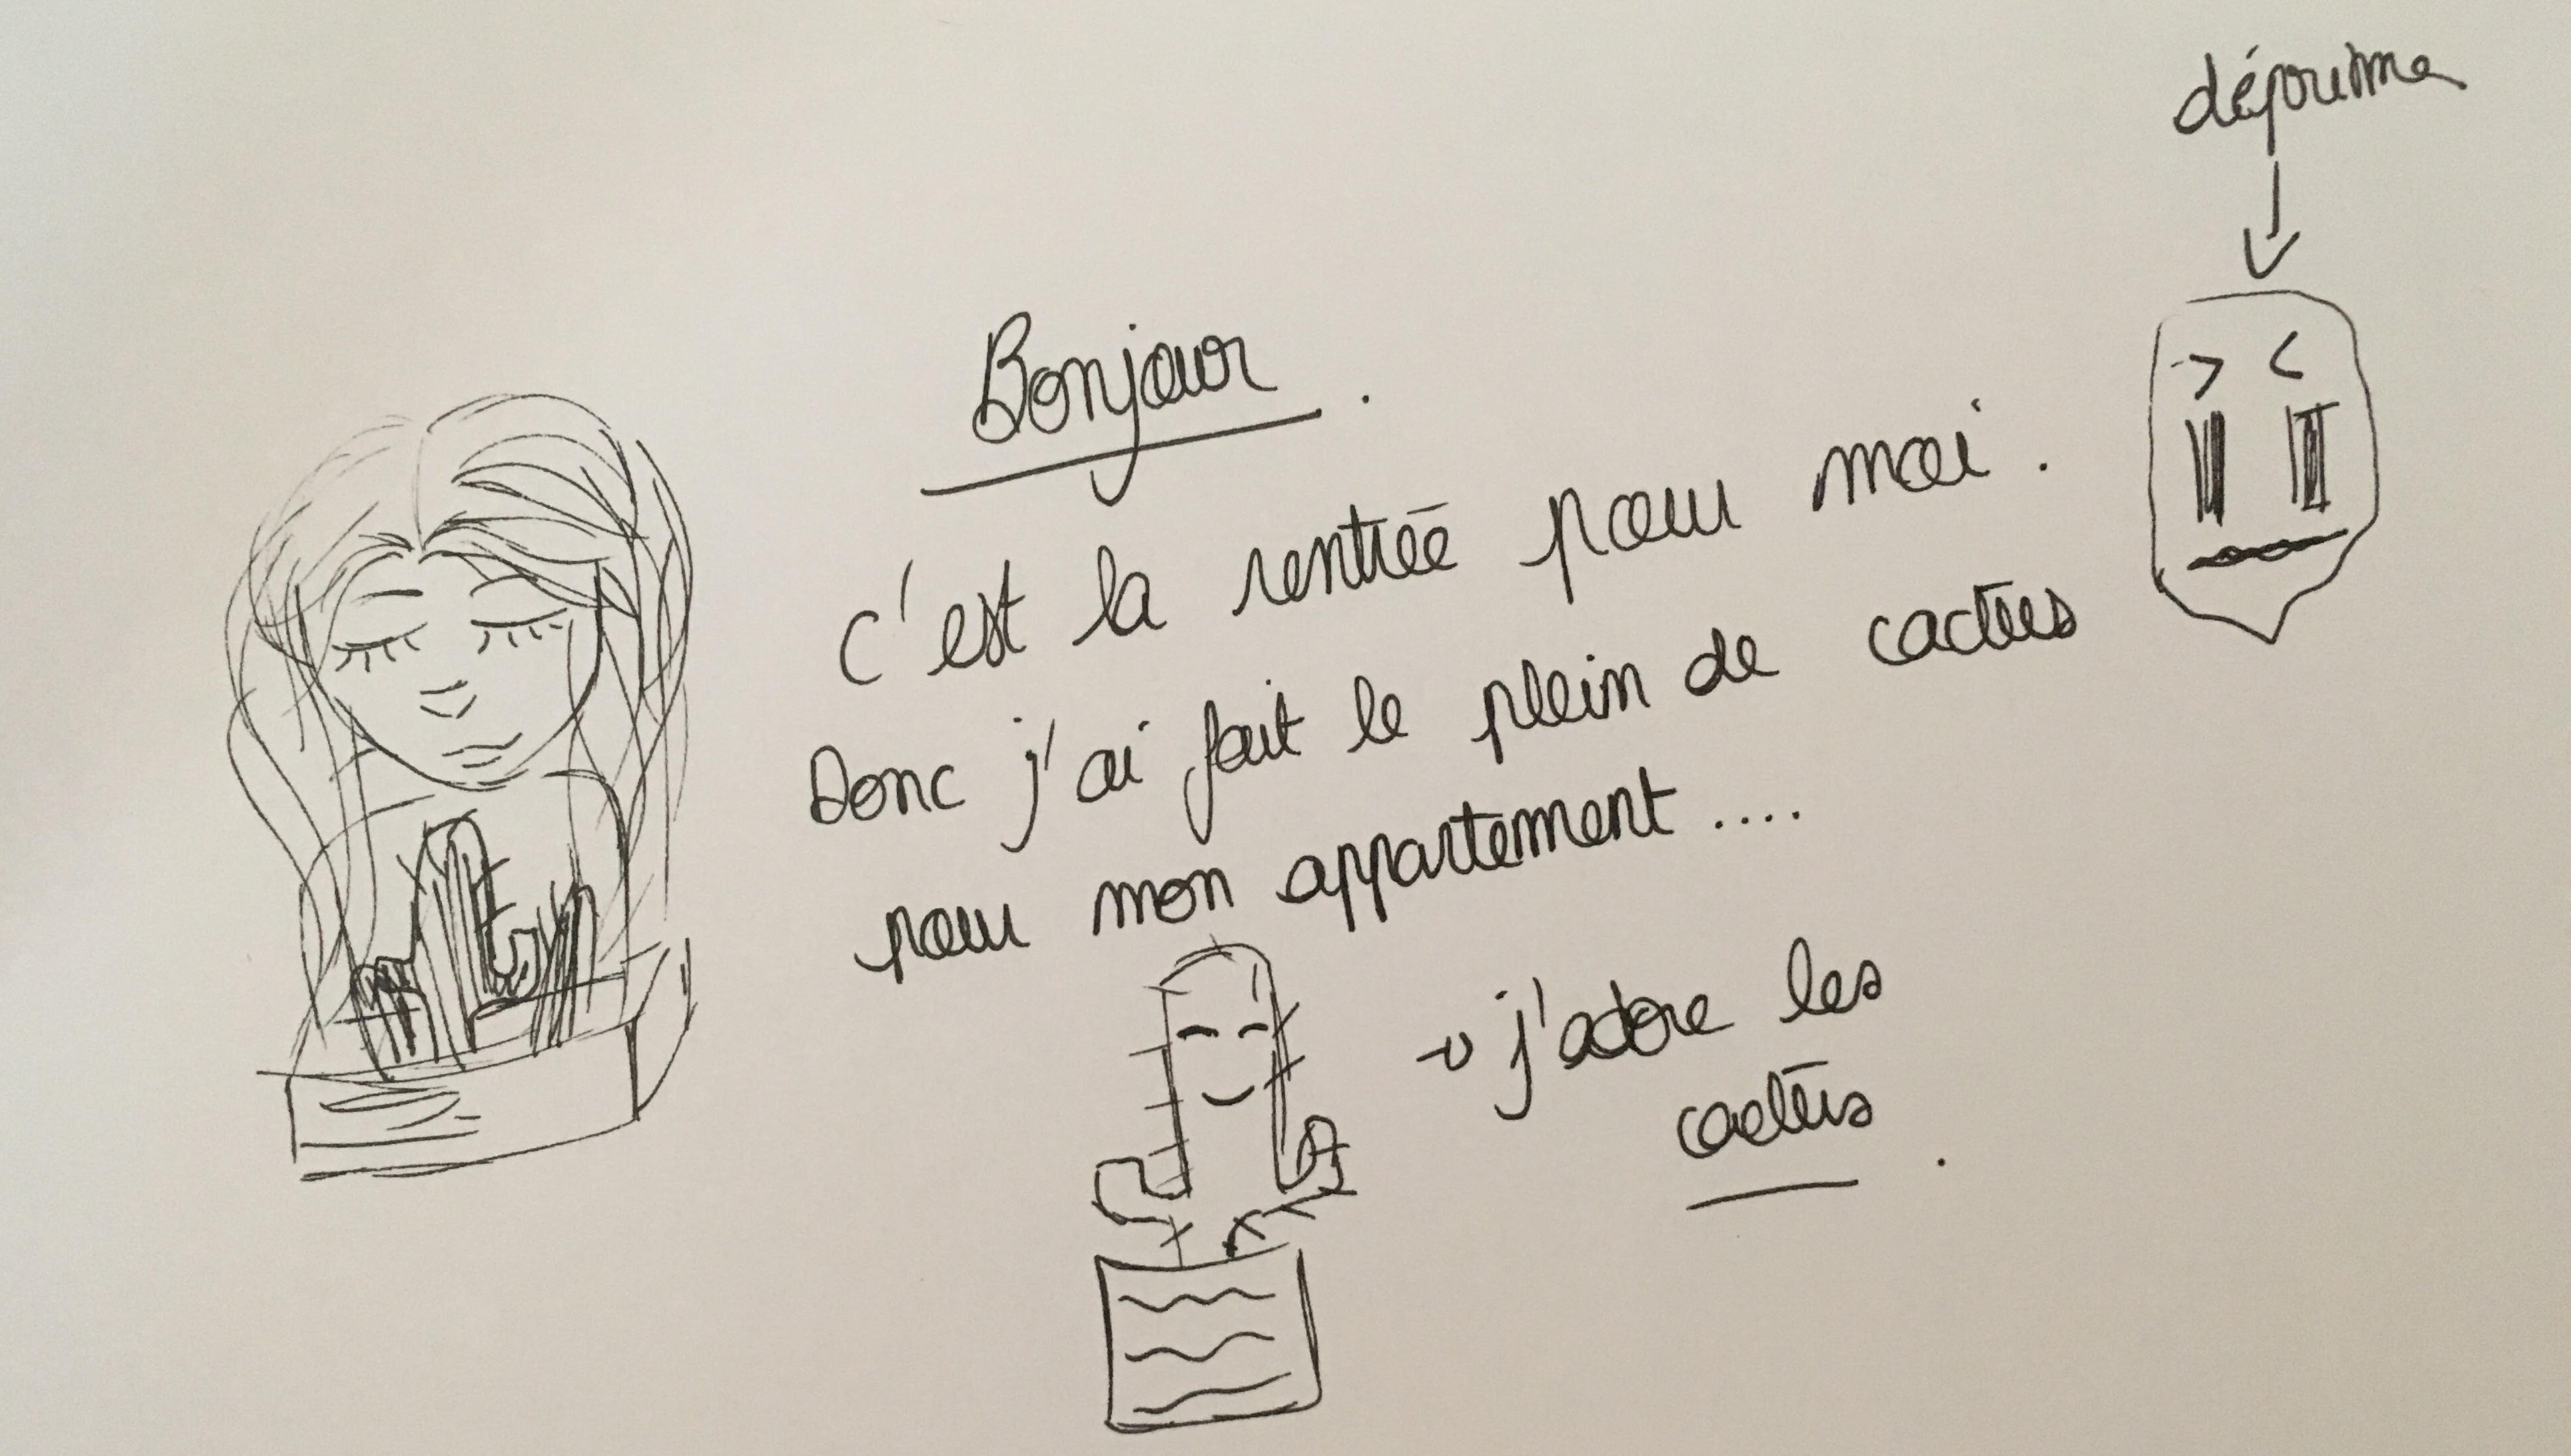 déprime
Bonjour.
C'est la rentrée pour moi.
Donc j'ai fait le plein de cactus
pour mon appartement....
j'adore les
cactus.